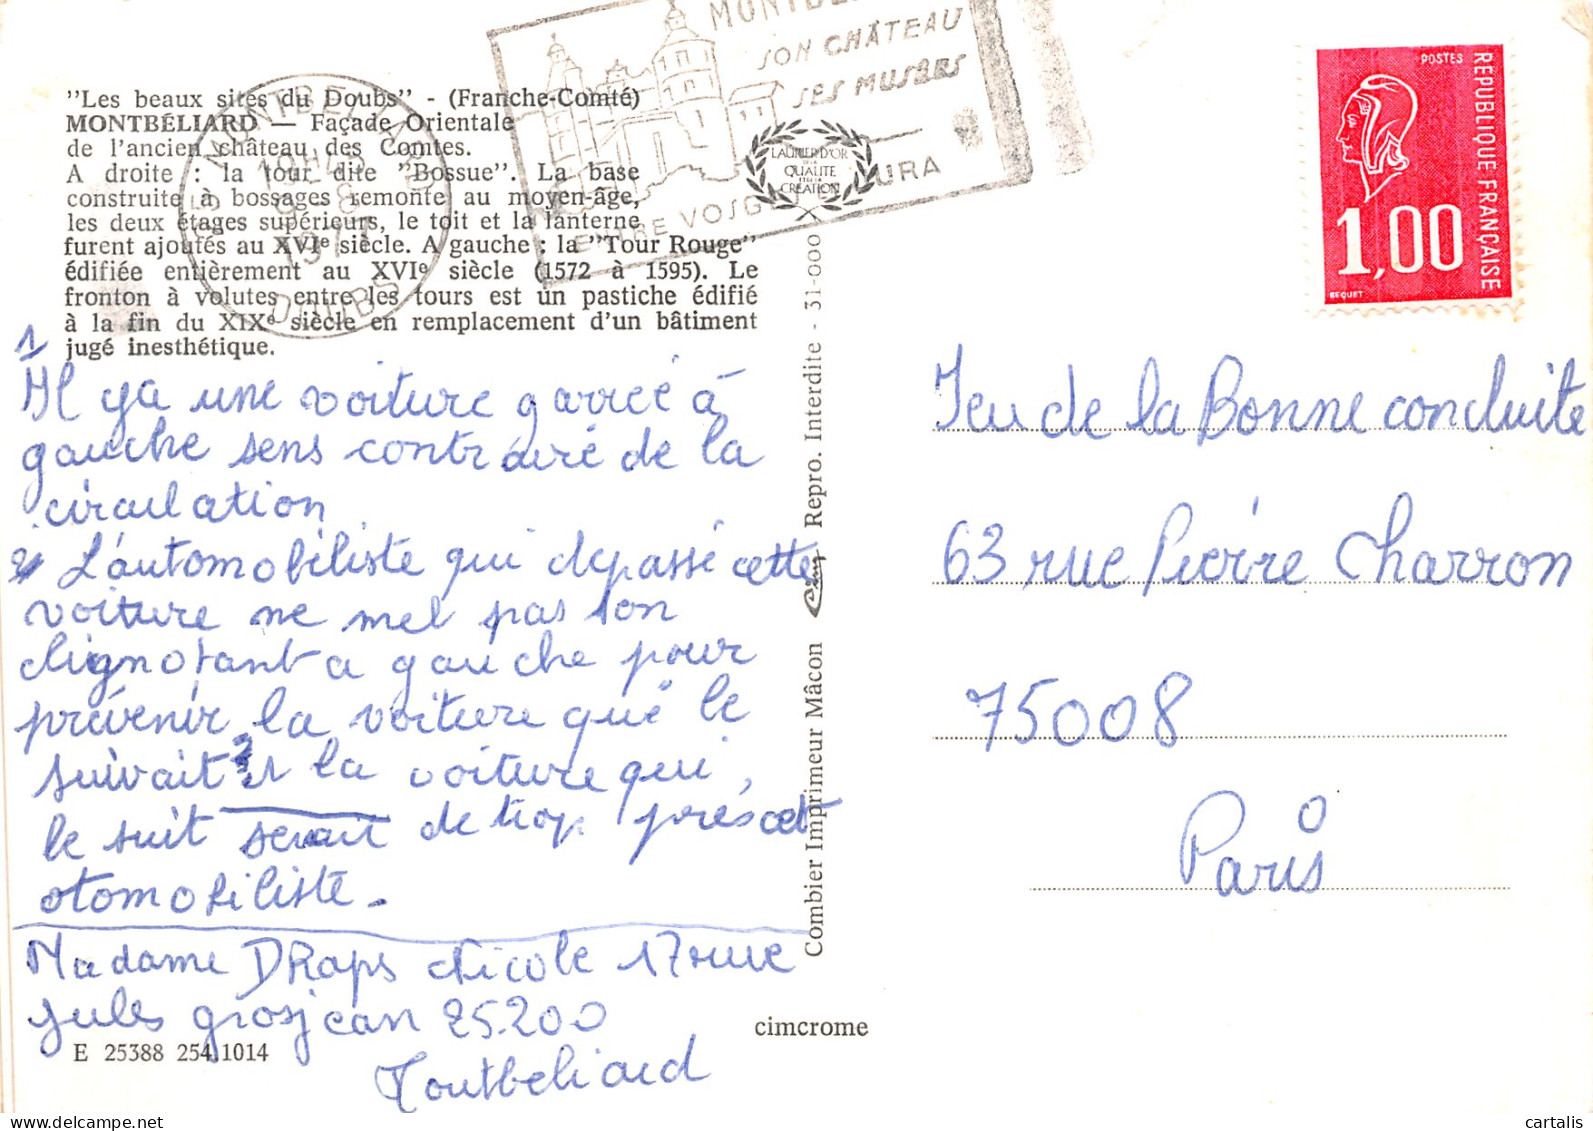 "Les beaux sites du Doubs" - (Franche-Comté)
MONTBÉLIARD — Façade Orientale
de l'ancien château des Comtes.
A droite : la tour dite "Bossue". La base
construite à bossages remonte au moyen-âge,
les deux étages supérieurs, le toit et la lanterne
furent ajoutés au XVIe siècle. A gauche : la "Tour Rouge"
édifiée entièrement au XVIe siècle (1572 à 1595). Le
fronton à volutes entre les tours est un pastiche édifié
à la fin du XIXe siècle en remplacement d'un bâtiment
jugé inesthétique.
SON CHÂTEAU
SES MUSÉES
DOUBS
LAURIER D'OR
DE LA
QUALITE
ET DE LA
CREATION
POSTES
REPUBLIQUE FRANÇAISE
1,00
BEQUET
1
Il ya une voiture garreé à
gauche sens contrairé de la
circulation
2 L'automobiliste qui depassé cette
voiture ne mel pas son
clignotant a gauche pour
prévenir la voiture qué le
suivait 3 la voiture qui
le suit serait de trop près cet
otomobiliste.
Madame DRaps Nicole 17 rue
jules grosjean 25.200
Montbeliard
E 25388 254.1014
cimcrome
Combier Imprimeur Mâcon Cim Repro. Interdite - 31-000
Jeu de la Bonne conduite
63 rue Pierre Charron
75008
Paris